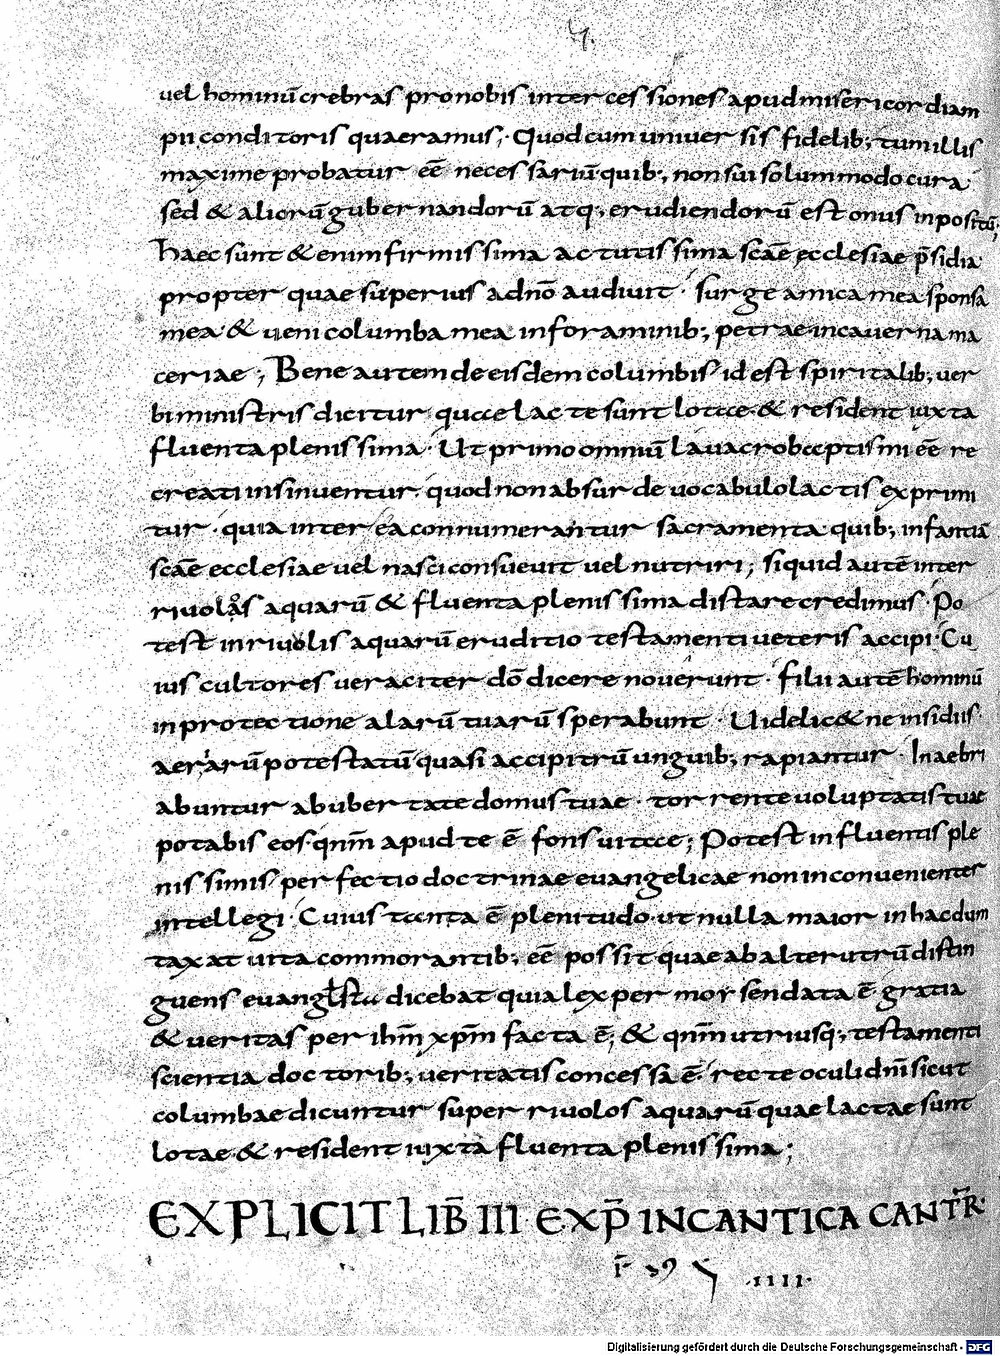 uel hominū crebras pro nobis intercessiones apud misericordiam
pii conditoris quaeramus; Quod cum uniuersis fidelib; tum illis
maxime probatur eē necessariū quib; non sui solummodo cura
sed & aliorū gubernandorū atq; erudiendorū est onus inpositū;
Haec sunt & enim firmissima ac tutissima scāe ecclesiae p̄sidia
propter quae superius a dnō audiuit · surge amica mea sponsa
mea & ueni columba mea in foraminib; petrae in cauerna ma
ceriae; Bene autem de eisdem columbis id est spiritalib; uer
bi ministris dicitur quae lacte sunt lotae & resident iuxta
fluenta plenissima · Ut primo omniū lauacro baptismi eē re
creati insinuentur · quod non absurde uocabulo lactis exprimi
tur · quia inter ea connumerantur sacramenta quib; infantiā
scāe ecclesiae uel nasci consueuit uel nutriri; si quid autē inter
riuolos aquarū & fluenta plenissima distare credimus · Po
test in riuolis aquarū eruditio testamenti ueteris accipi · Cu
ius cultores ueraciter dō dicere nouerunt · filii autē hominū
in protectione alarū tuarū sperabunt · Uidelic& ne insidiis
aeriarū potestatū quasi accipitrū unguib; rapiantur · Inaebri
abuntur ab ubertate domus tuae · torrente uoluptatis tuae
potabis eos · qnm̄ apud te ē fons uitae; Potest in fluentis ple
nissimis perfectio doctrinae euangelicae non inconuenienter
intellegi · Cuius tanta ē plenitudo ut nulla maior in hac dum
taxat uita commorantib; eē possit quae ab alterutrū distin
guens euanglsta dicebat quia lex per morsen data ē gratia
& ueritas per ihm̄ xpm̄ facta ē; & qnm̄ utriusq; testamenti
scientia doctorib; ueritatis concessa ē · recte oculi dnī sicut
columbae dicuntur super riuolos aquarū quae lactae sunt
lotae & resident iuxta fluenta plenissima;
EXPLICIT LIB̄ III EXP̄ IN CANTICA CANTR̄·
·IIII·